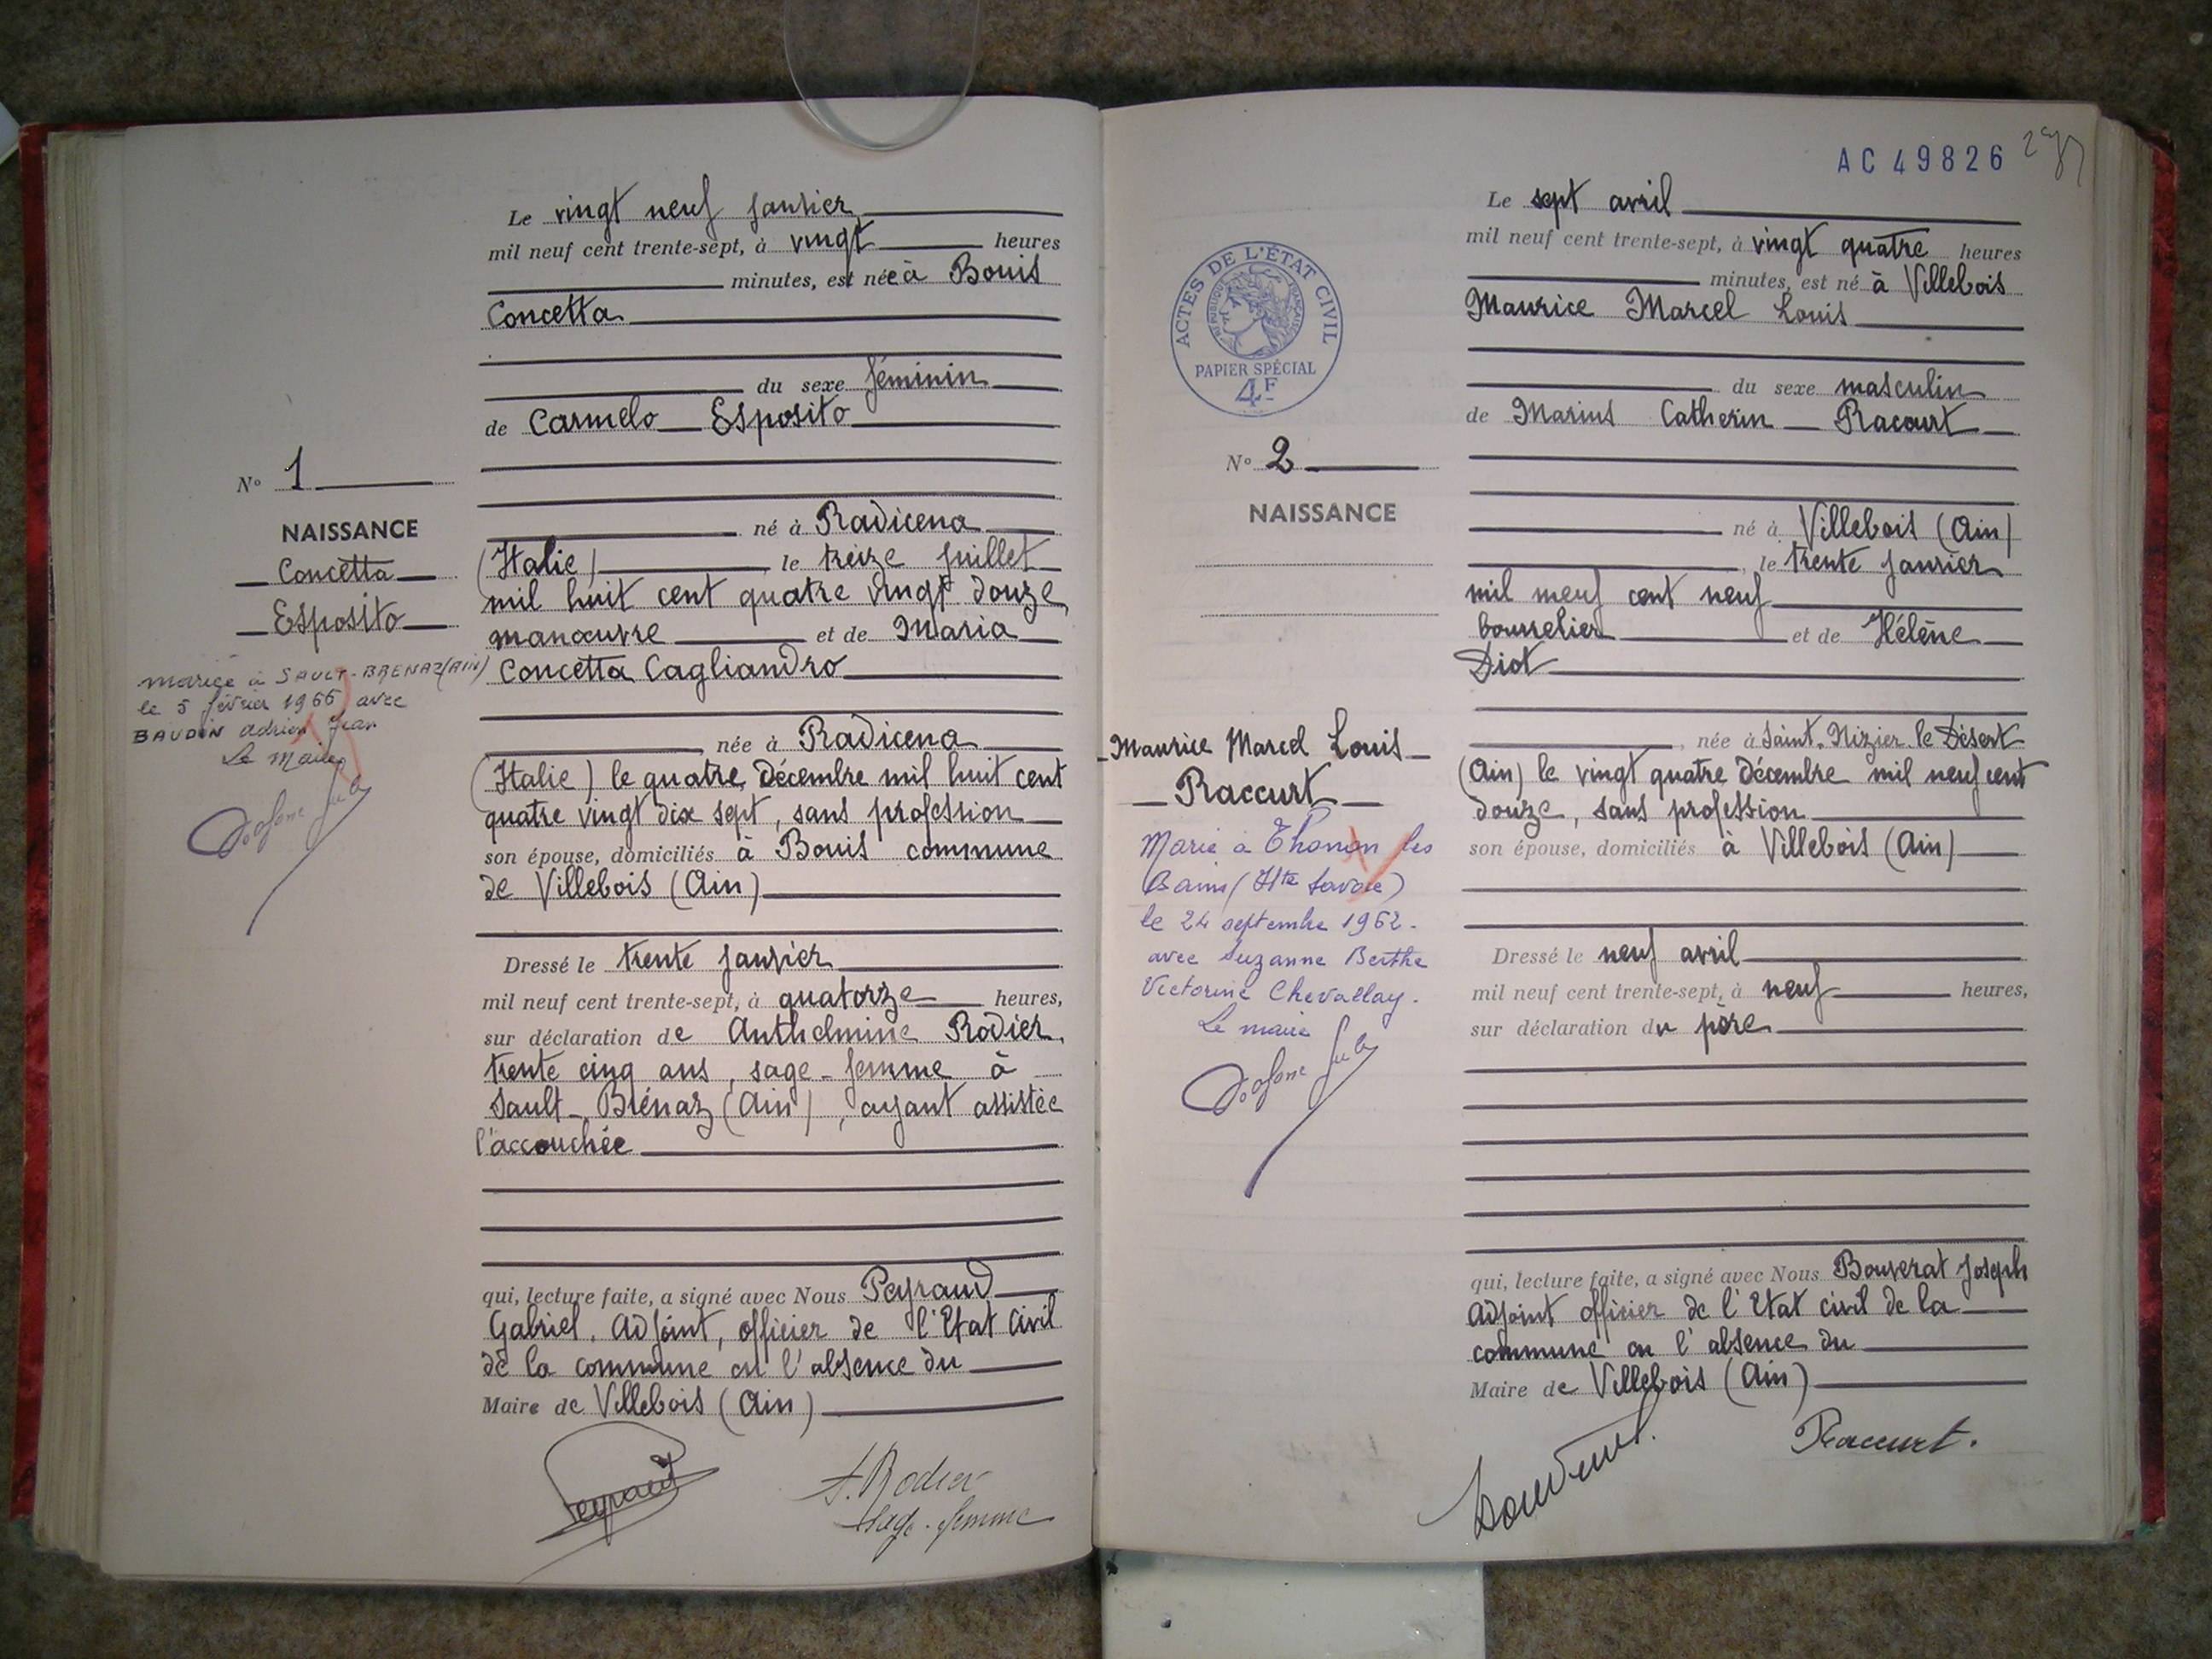 Le vingt neuf janvier
mil neuf cent trente-sept, à vingt heures
minutes, est née à Bouis
Concetta
du sexe féminin
de Carmelo Esposito
né à Radicena
(Italie) le treize juillet
mil huit cent quatre vingt douze
manœuvre et de Maria
Concetta Cagliandro
née à Radicena
(Italie) le quatre Décembre mil huit cent
quatre vingt dix sept, sans profession
son épouse, domiciliés à Bouis commune
de Villebois (Ain)
Dressé le trente janvier
mil neuf cent trente-sept, à quatorze heures,
sur déclaration de Anthelmine Rodier,
trente cinq ans, sage-femme à
Sault-Brénaz (Ain), ayant assistée
l'accouchée
qui, lecture faite, a signé avec Nous Peyraud
Gabriel, Adjoint, officier de l'Etat Civil
de la commune en l'absence du
Maire de Villebois (Ain)
Peyraud
A. Rodier
sage-femme
N° 1
NAISSANCE
Concetta
Esposito
mariée à SAULT-BRENAZ (AIN)
le 5 février 1966 avec
BAUDIN adrien Jean
Le maire
AC 49826
ACTES DE L'ÉTAT CIVIL
RÉPUBLIQUE FRANÇAISE
PAPIER SPÉCIAL
4F
N° 2
NAISSANCE
Maurice Marcel Louis
Raccurt
Marié à Thonon les
Bains (Hte Savoie)
le 24 septembre 1962.
avec Suzanne Berthe
Victorine Chevallay.
Le maire
Le sept avril
mil neuf cent trente-sept, à vingt quatre heures
minutes, est né à Villebois
Maurice Marcel Louis
du sexe masculin
de Marius Catherin Racourt
né à Villebois (Ain)
, le trente janvier
mil neuf cent neuf
bourrelier et de Hélène
Diot
, née à Saint-Nizier le Désert
(Ain) le vingt quatre Décembre mil neuf cent
douze, sans profession
son épouse, domiciliés à Villebois (Ain)
Dressé le neuf avril
mil neuf cent trente-sept, à neuf heures,
sur déclaration du père
qui, lecture faite, a signé avec Nous Bouverat Joseph
Adjoint officier de l'Etat civil de la
commune en l'absence du
Maire de Villebois (Ain)
Raccurt.